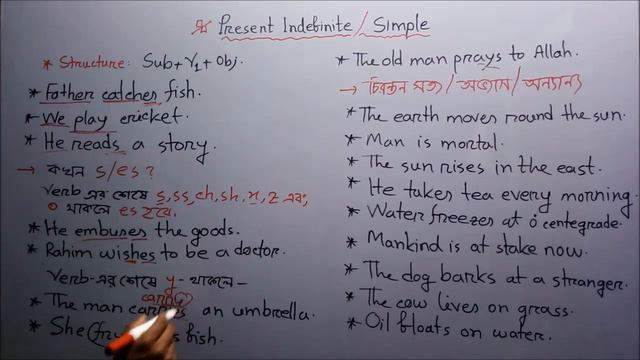 Present Indefinite / Simple
* Structure: Sub + V1 + Obj.
* Father catches fish.
* We play cricket.
* He reads a story.
→ কখন s/es?
Verb এর শেষে s, ss, ch, sh, x, z এবং
o থাকলে es হবে.
* He embuses the goods.
* Rahim wishes to be a doctor.
Verb-এর শেষে y- থাকলে -
* The man an umbrella.
* She fish.
* The old man prays to Allah.
→ চিরন্তন সত্য / অভ্যাস / অন্যান্য
* The earth moves round the sun.
* Man is mortal.
* The sun rises in the east.
* He takes tea every morning.
* Water freezes at 0 centegrade.
* Mankind is at stake now.
* The dog barks at a stranger.
* The cow lives on grass.
* Oil floats on water.